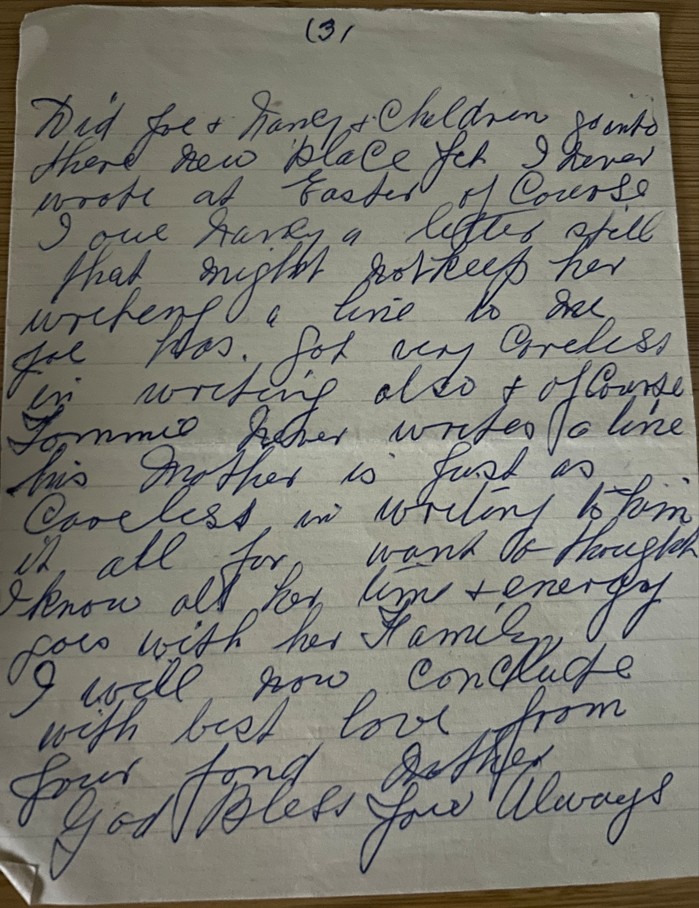 (3)
Did Joe + Nancy + Children go into
there new place yet I never
wrote at Easter of Course
I owe Nancy a letter still
that might not keep her
writeng a line to me
Joe has. got very Careless
in writing also + of Course
Tommie never writes a line
his mother is just as
Careless in writing to him
it all for want o thought
I know all her time + energy
goes with her Family
I will now Conclude
with best love from
your fond Mother
God Bless you Always